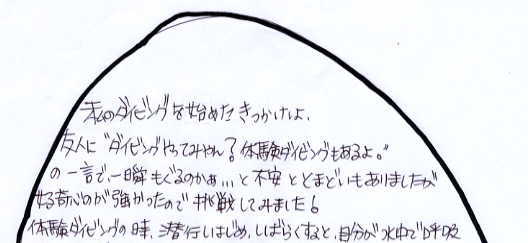 私のダイビングを始めたきっかけは、
友人に"ダイビングやってみやん？体験ダイビングもあるよ。"
の一言で、一瞬もぐるのかぁ...と不安ととまどいもありましたが
好奇心が強かったので挑戦してみました！
体験ダイビングの時、潜行しはじめ、しばらくすると、自分が水中で呼吸